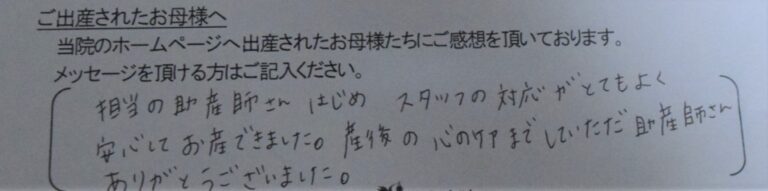 ご出産されたお母様へ
当院のホームページへ出産されたお母様たちにご感想を頂いております。
メッセージを頂ける方はご記入ください。
担当の助産師さん はじめ スタッフの対応がとてもよく
安心してお産できました。産後の心のケアまでしていただ助産師さん
ありがとうございました。